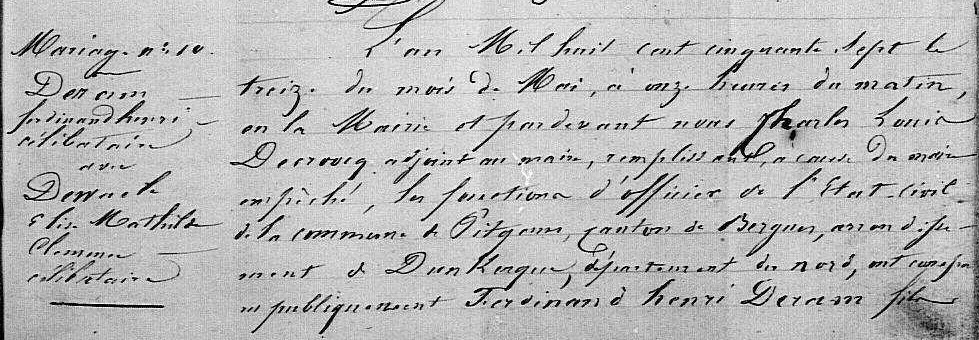 Mariage nº 10.
Deram
ferdinand henri
célibataire
avec
Dewaele
Elise Mathilde
Clemence
célibataire
L'an Mil huit cent cinquante Sept le
treize du mois de Mai, à onze heures du matin,
en la Mairie et pardevant nous Charles Louis
Decrocq adjoint au maire, remplissant, a cause du maire
empêché, les fonctions d'officier de l'Etat-civil
de la commune de Pitgam, canton de Bergues, arrondisse-
ment de Dunkerque, département du nord, ont comparu
publiquement Ferdinand henri Deram fils